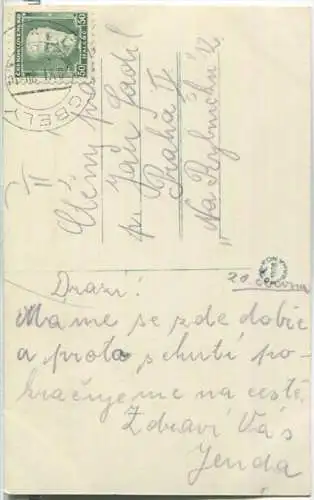 ČESKOSLOVENSKO
50 HALÉŘŮ 50
KBELY
II
Ctěný pán
Jan
Praha II
"Na Rybníčku" 12.
20. června
Drazí!
Máme se zde dobře
a proto s chutí po-
kračujeme na cestě.
Zdraví Vás
Jenda